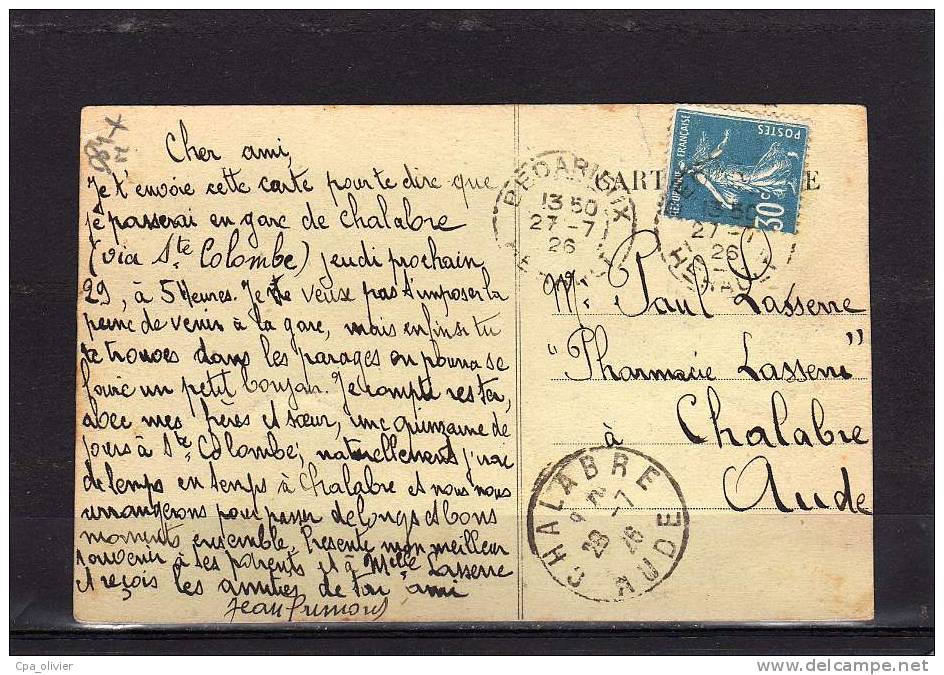 Cher ami,
Je t'envoie cette carte pour te dire que
je passerai en gare de Chalabre
(via Ste Colombe) jeudi prochain
29, à 5 Heures. Je ne veuse pas t'imposer la
peine de venir à la gare, mais enfin si tu
te trouves dans les parages on pourra se
faire un petit bonjour. Je compte rester,
avec mes frères et sœur, une quinzaine de
jours à Ste Colombe; naturellement j'irai
de temps en temps à Chalabre et nous nous
arrangerons pour passer de longs et bons
moments ensemble. Présente mon meilleur
souvenir à tes parents et à Melle Lasserre
et reçois les amitiés de ton ami
Jean
CARTE
BEDARIEUX
13 50
27 -7
26
HERAULT
REPUBLIQUE FRANÇAISE
POSTES
30 C
Mr. Paul Lasserre
"Pharmacie Lasserre"
à Chalabre
Aude
CHALABRE
28 -7
26
AUDE
Cpa_olivier
delcampe.net